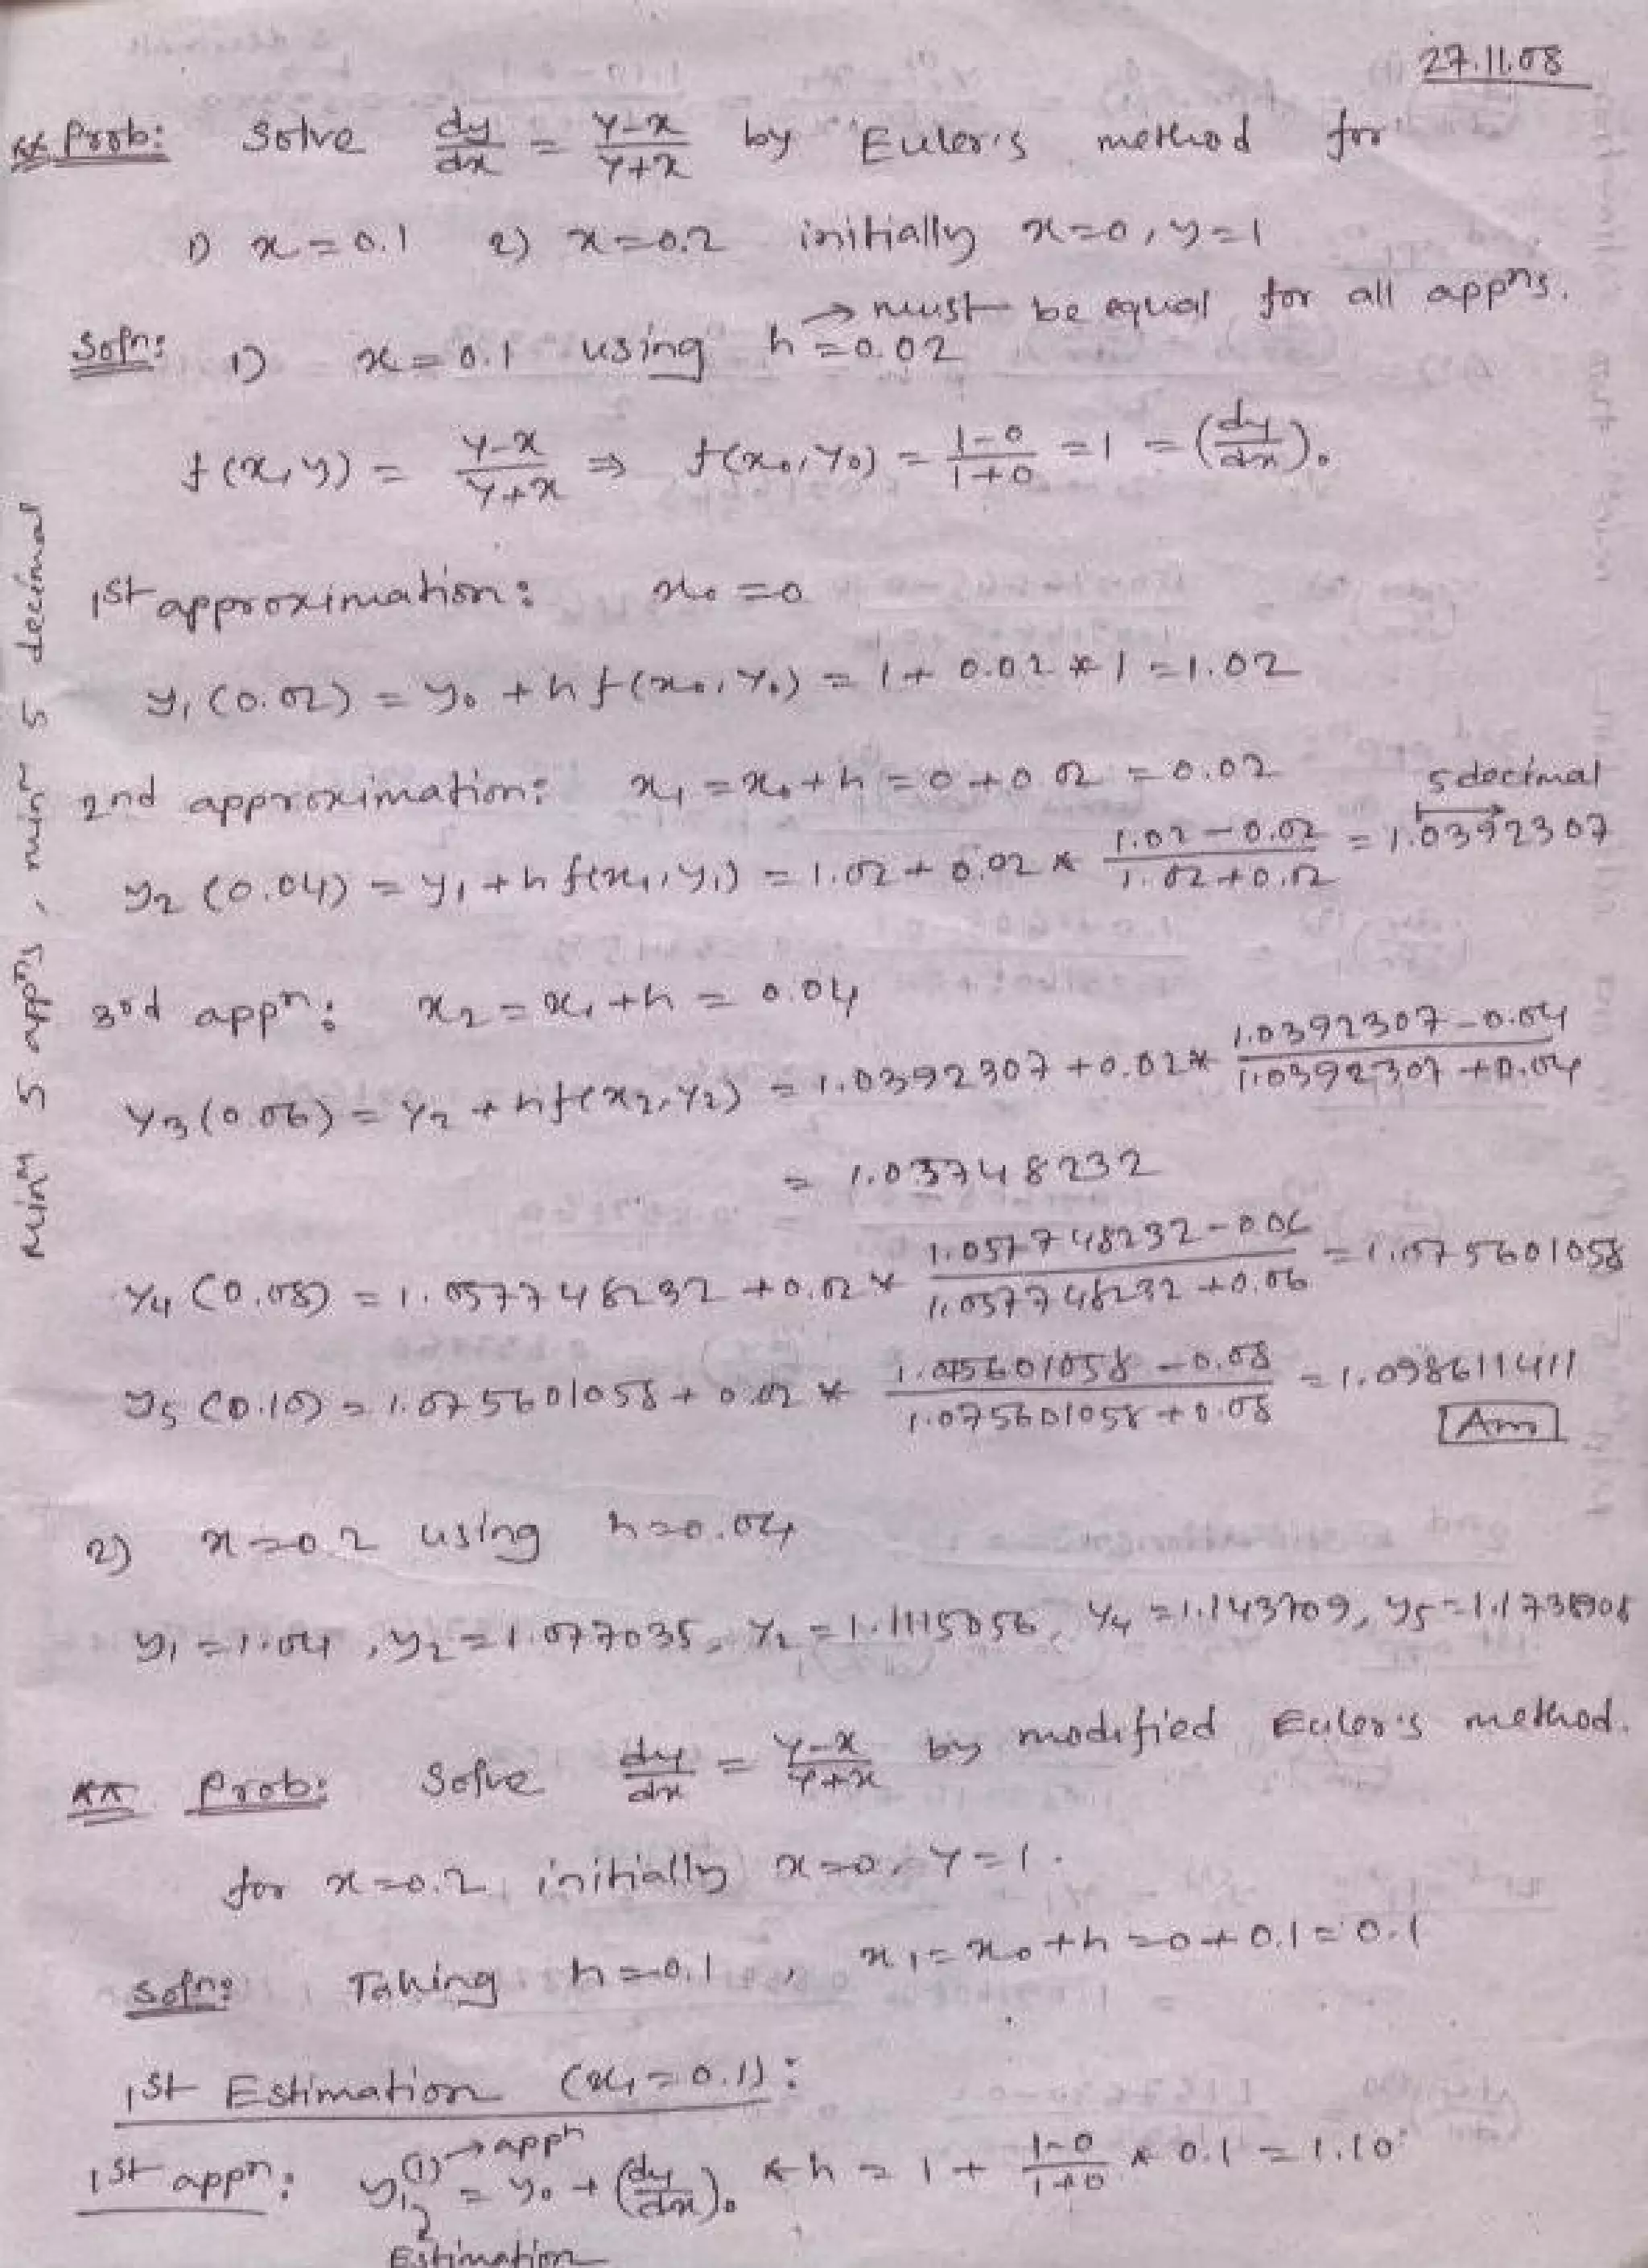 27.11.08
** Prob: Solve dy/dx = (y-x)/(y+x) by Euler's method for
1) x=0.1 2) x=0.2 initially x=0, y=1
→ must be equal for all appns.
Soln: 1) x=0.1 using h=0.02
f(x,y) = (y-x)/(y+x) ⇒ f(x₀,y₀) = (1-0)/(1+0) = 1 = (dy/dx)₀
1st approximation: x₀=0
y₁(0.02) = y₀ + h f(x₀,y₀) = 1+ 0.02 * 1 = 1.02
2nd approximation: x₁ = x₀+h = 0+0.02 = 0.02
5 decimal
y₂(0.04) = y₁ + h f(x₁,y₁) = 1.02 + 0.02 * (1.02-0.02)/(1.02+0.02) = 1.0392307
3rd appn: x₂ = x₁+h = 0.04
y₃(0.06) = y₂ + hf(x₂,y₂) = 1.0392307 + 0.02* (1.0392307-0.04)/(1.0392307+0.04)
= 1.03748232
y₄(0.08) = 1.057748232 + 0.02* (1.057748232-0.06)/(1.057748232+0.06) = 1.075601058
y₅(0.10) = 1.075601058 + 0.02 * (1.075601058-0.08)/(1.075601058+0.08) = 1.098611411
Ans
2) x=0.2 using h=0.04
y₁ = 1.04, y₂ = 1.077035, y₂ = 1.1115056, y₄ = 1.143709, y₅ =
** Prob: Solve dy/dx = (y-x)/(y+x) by modified Euler's method.
for x=0.2 initially x=0, y=1.
Soln: Taking h=0.1, x₁ = x₀+h = 0+0.1 = 0.1
1st Estimation (x₁=0.1):
→appn
1st appn: y₁⁽¹⁾ = y₀ + (dy/dx)₀ * h = 1 + (1-0)/(1+0) * 0.1 = 1.10
Estimation
Minm 5 appns, minm 5 decimal